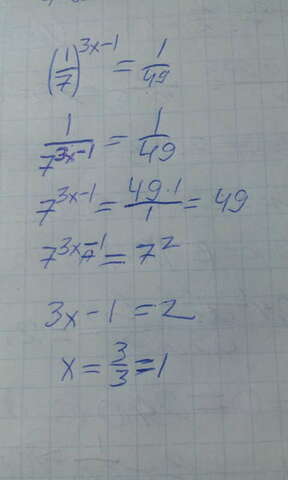 (1/7)^(3x-1) = 1/49
1/7^(3x-1) = 1/49
7^(3x-1) = 49·1/1 = 49
7^(3x-1) = 7^2
3x-1 = 2
x = 3/3 = 1